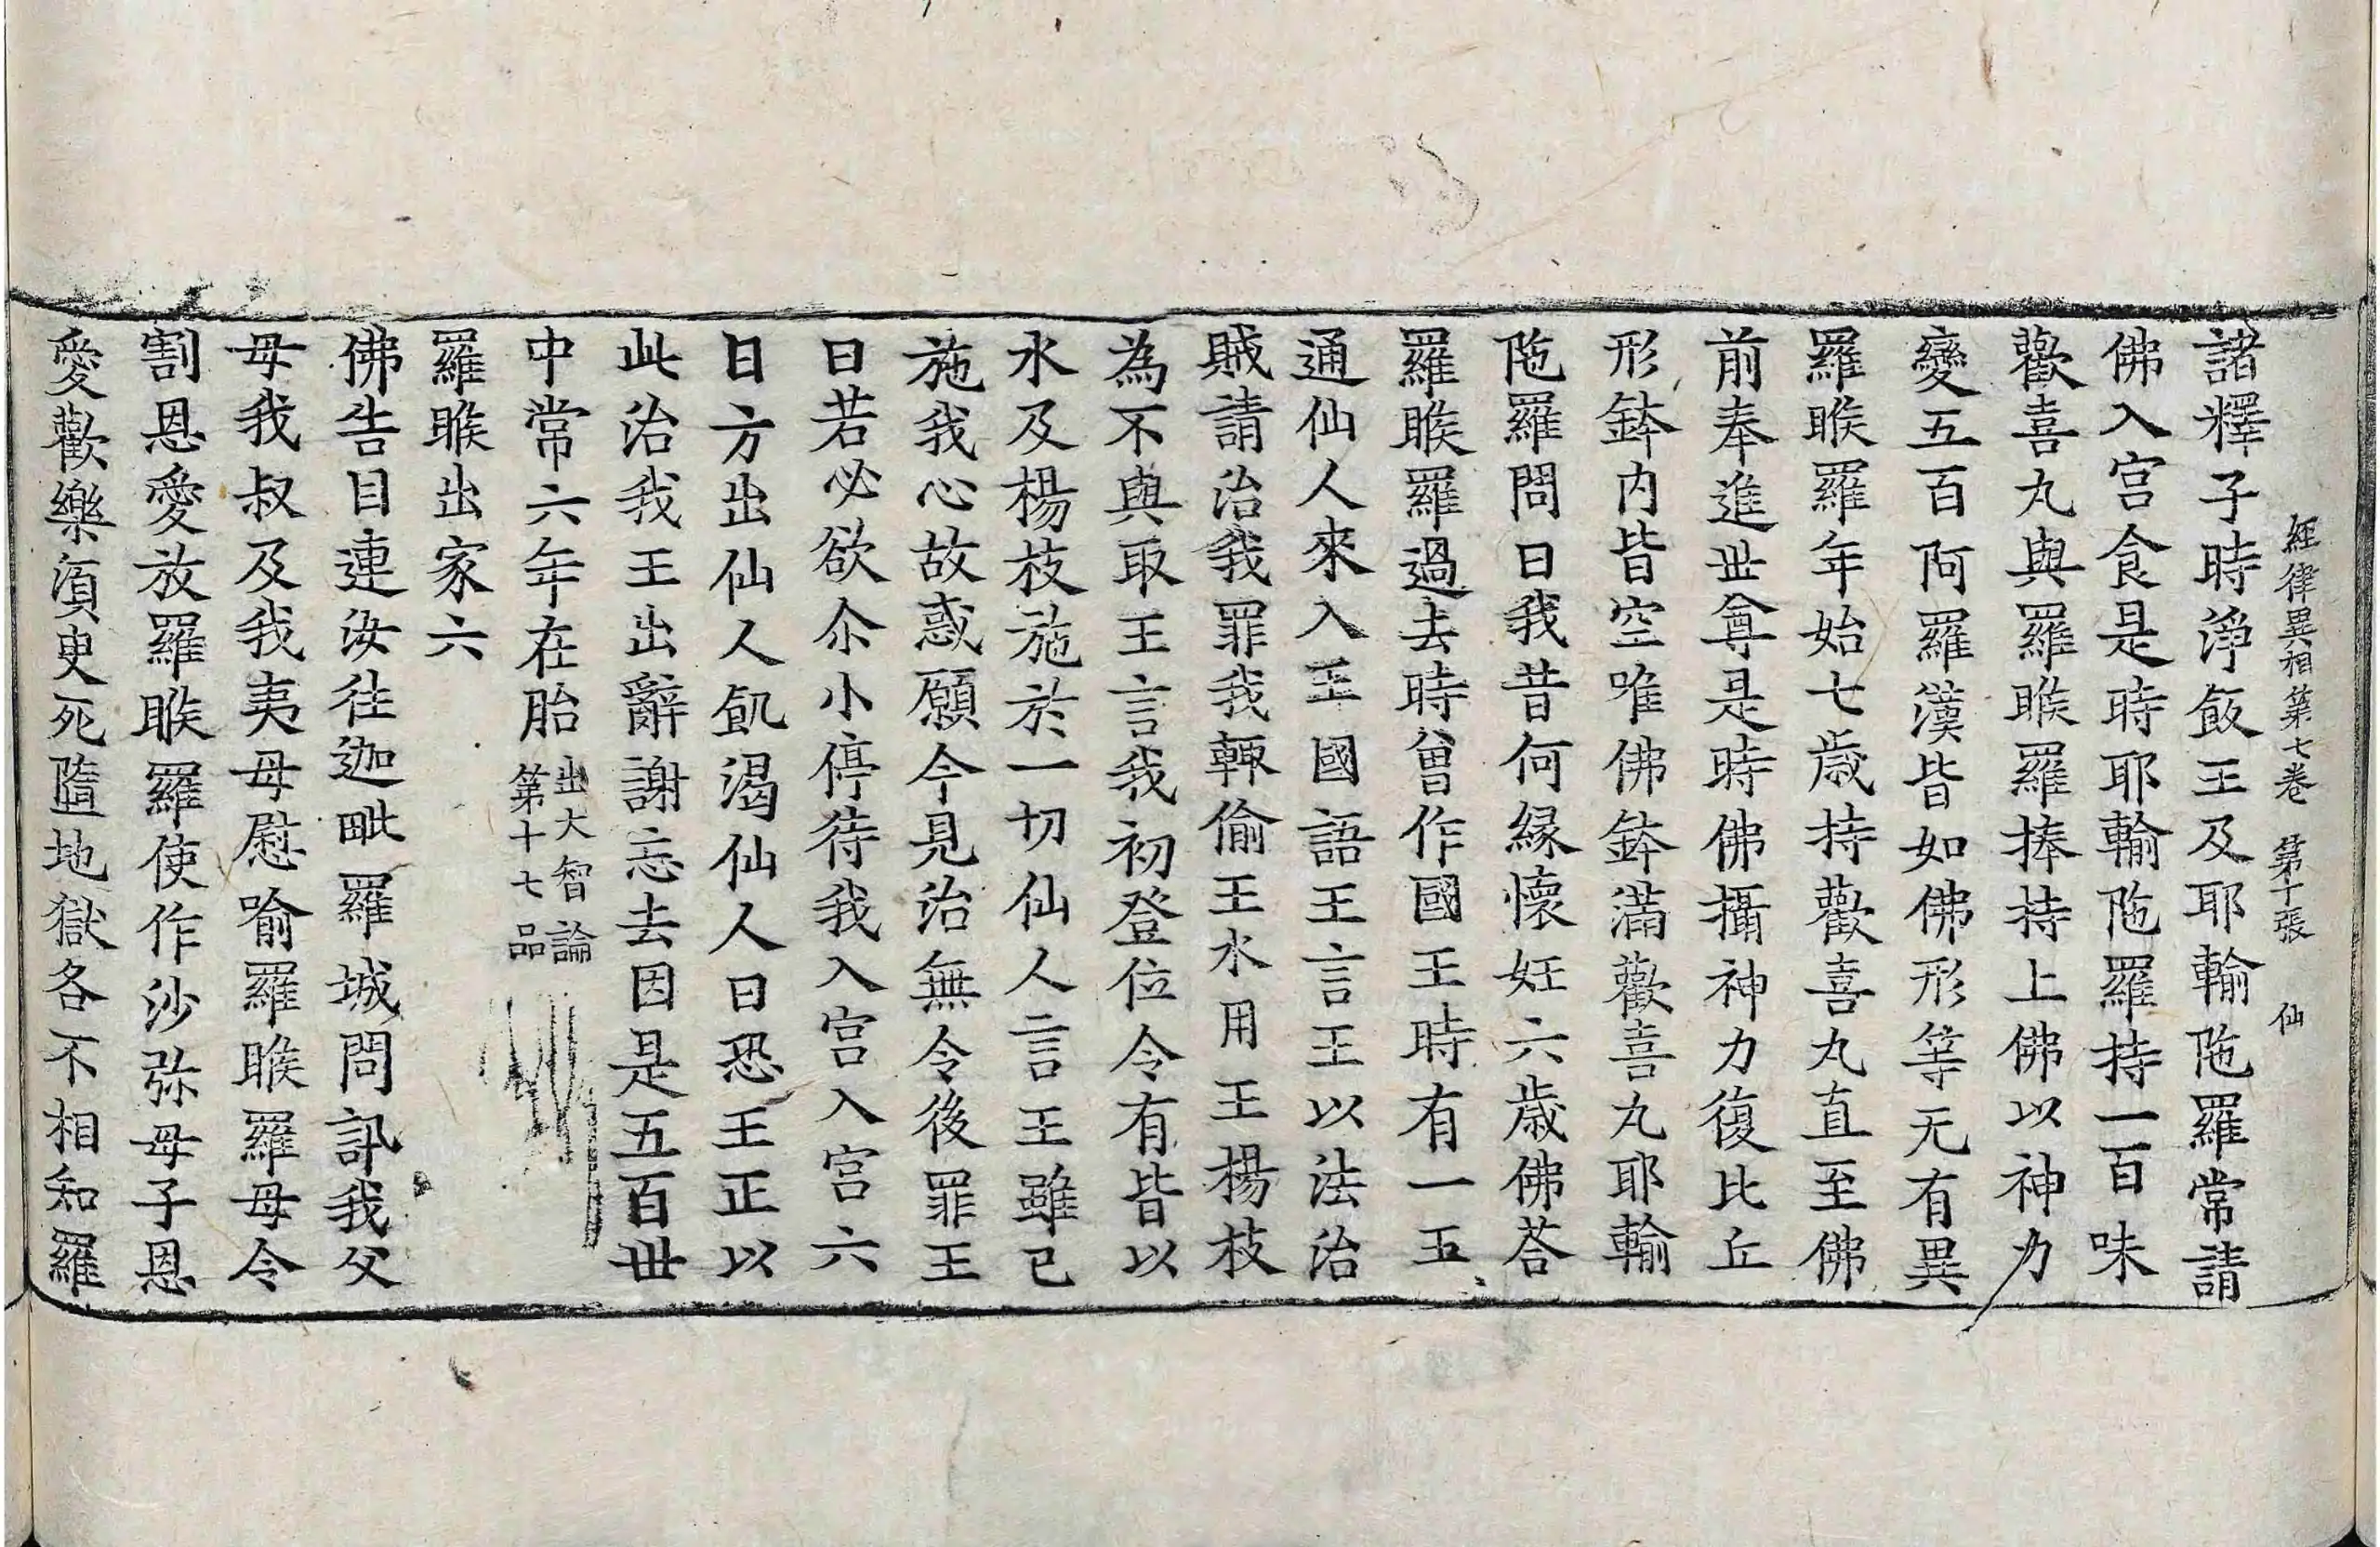 經律異相第七卷 第十張 仙
諸釋子時淨飯王及耶輸陁羅常請
佛入宮食是時耶輸陁羅持一百味
歡喜丸與羅睺羅捧持上佛以神力
變五百阿羅漢皆如佛形等无有異
羅睺羅年始七歲持歡喜丸直至佛
前奉進世尊是時佛攝神力復比丘
形鉢内皆空唯佛鉢滿歡喜丸耶輸
陁羅問曰我昔何緣懷妊六歲佛荅
羅睺羅過去時曾作國王時有一五
通仙人來入王國語王言王以法治
賊請治我罪我輙偷王水用王楊枝
為不與取王言我初登位令有皆以
水及楊枝施於一切仙人言王雖已
施我心故惑願今見治無令後罪王
曰若必欲尒小停待我入宮入宮六
日方出仙人飢渴仙人曰恐王正以
此治我王出辭謝忘去因是五百世
中常六年在胎 出大智論第十七品
羅睺出家六
佛告目連汝往迦毗羅城問訊我父
母我叔及我夷母慰喻羅睺羅母令
割恩愛放羅睺羅使作沙弥母子恩
愛歡樂湏臾死墮地獄各不相知羅